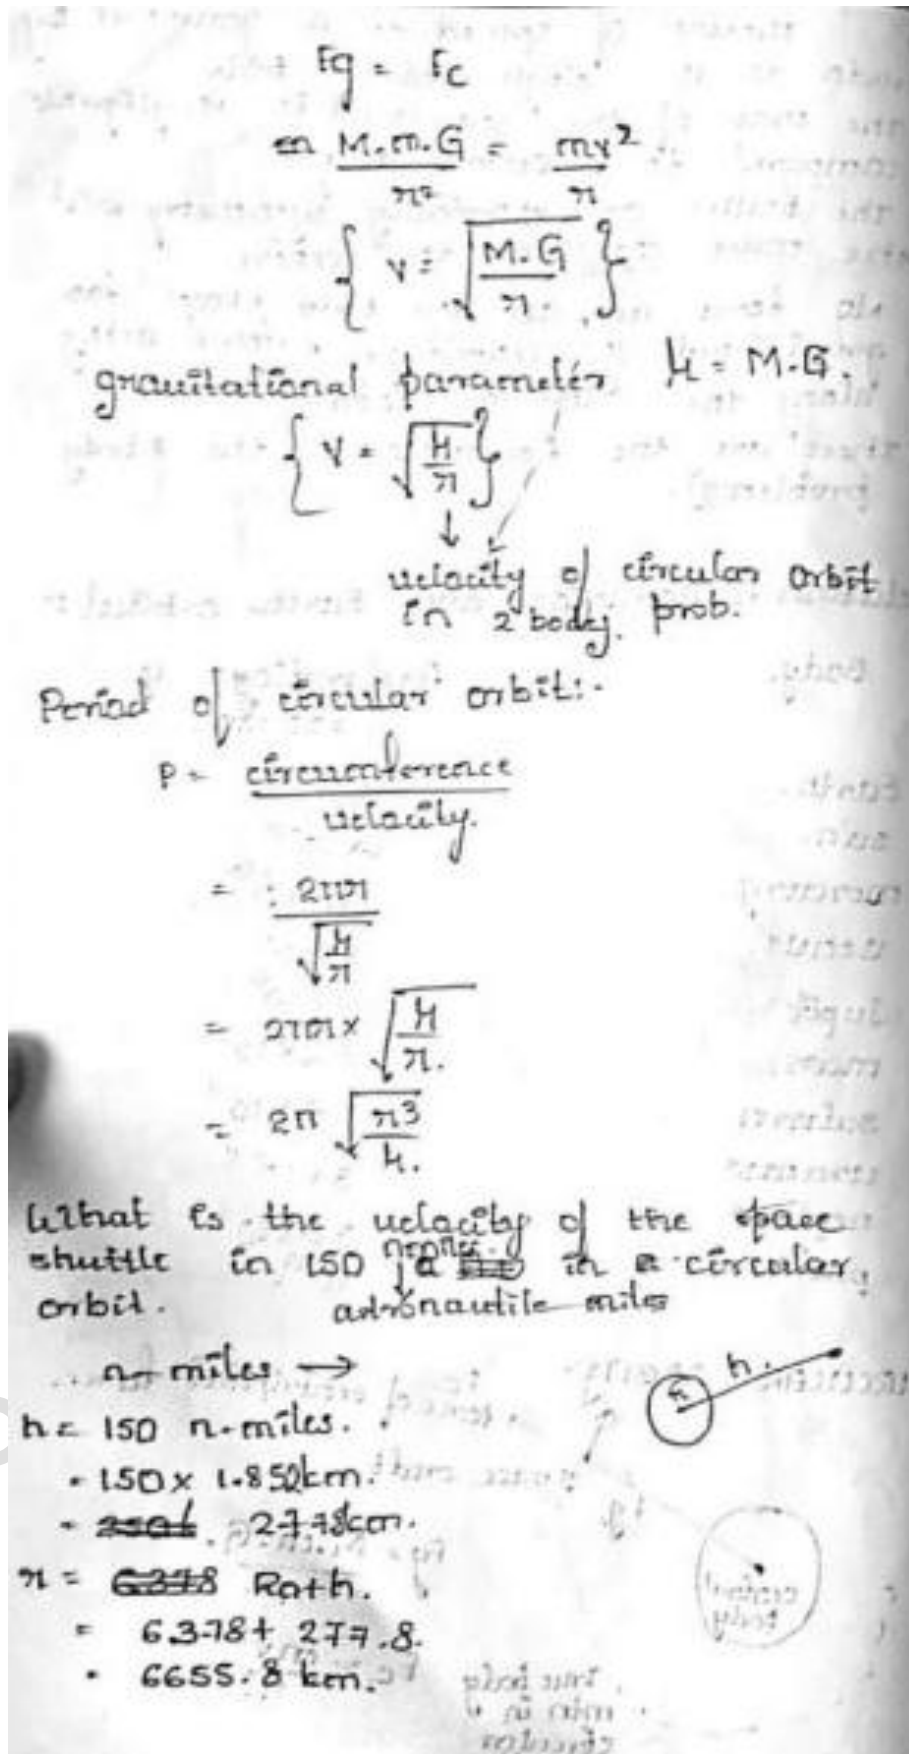 Fg = Fc
=> M.m.G / r² = mv² / r
{ v = √(M.G / r) }
gravitational parameter μ = M.G.
{ v = √(μ / r) }
↓
velocity of circular orbit
in 2 body. prob.
Period of circular orbit:-
P = circumference / velocity.
= 2πr / √(μ / r)
= 2πr × √(μ / r.)
= 2π √(r³ / μ.)
What is the velocity of the space
shuttle in 150 in a circular
orbit. miles
n-miles →
h = 150 n-miles.
= 150 x 1.852km.
= 277.8km.
r h.
r = 6378 R0+h.
= 6378+ 277.8.
= 6655.8 km.